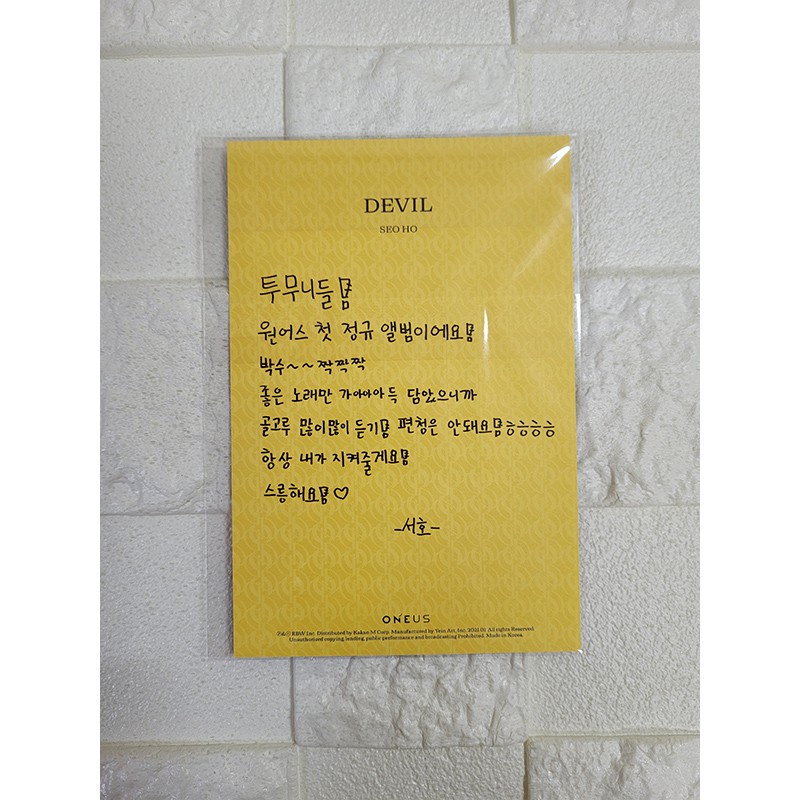 DEVIL
SEO HO
투무니들
원어스 첫 정규 앨범이에요
박수~~짝짝짝
좋은 노래만 가아아아득 담았으니까
골고루 많이많이 듣기 편청은 안돼요ㅎㅎㅎㅎ
항상 내가 지켜줄게요
스릉해요♡
-서호-
ONEUS
℗&© RBW Inc. Distributed by Kakao M Corp. Manufactured by Yein Art, Inc. 2021.01. All rights Reserved.
Unauthorized copying, lending, public performance and broadcasting Prohibited. Made in Korea.